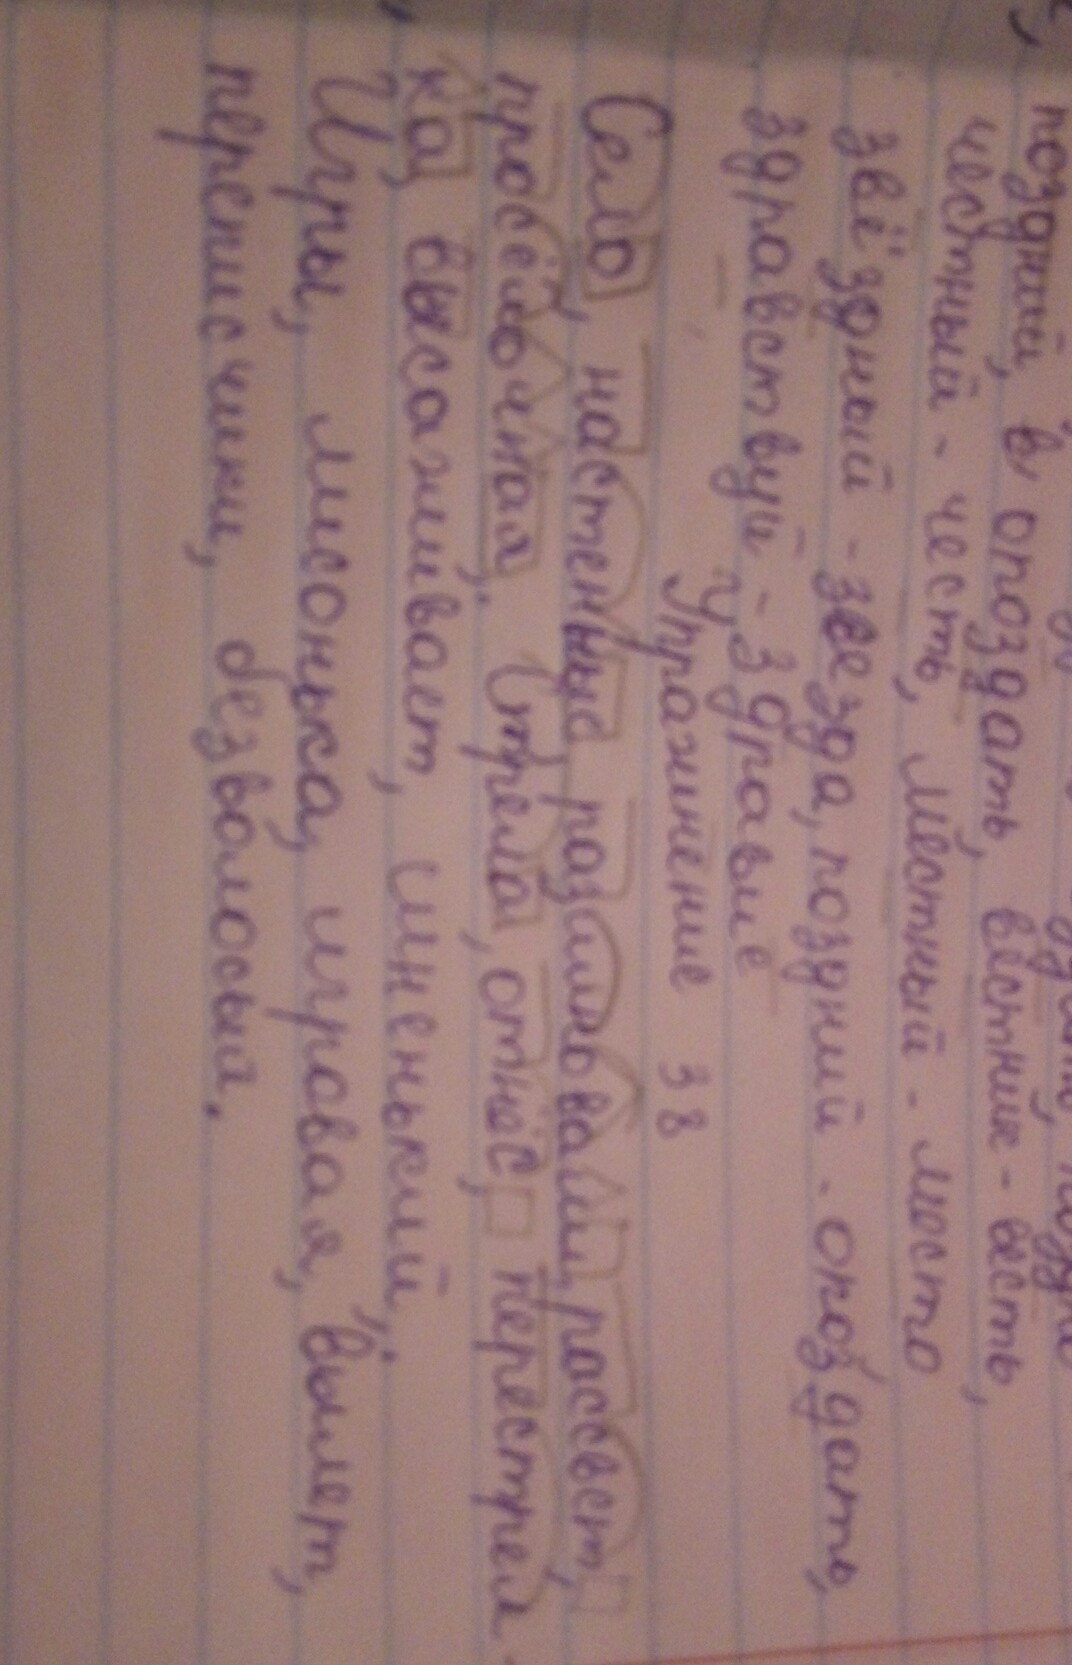 поздний, в опоздать, вестник - весть,
честный - честь, местный - место
звёздный - звезда, поздний - опоздать,
здравствуй - здравие
Упражнение 38
Село, настенные разлиновали, рассвет,
просёлочная; Стрела, отнёс, перестрел
ка, высаживает, синенький;
Игры, лисонька, игровая, вылет,
переписчики, безволосый.